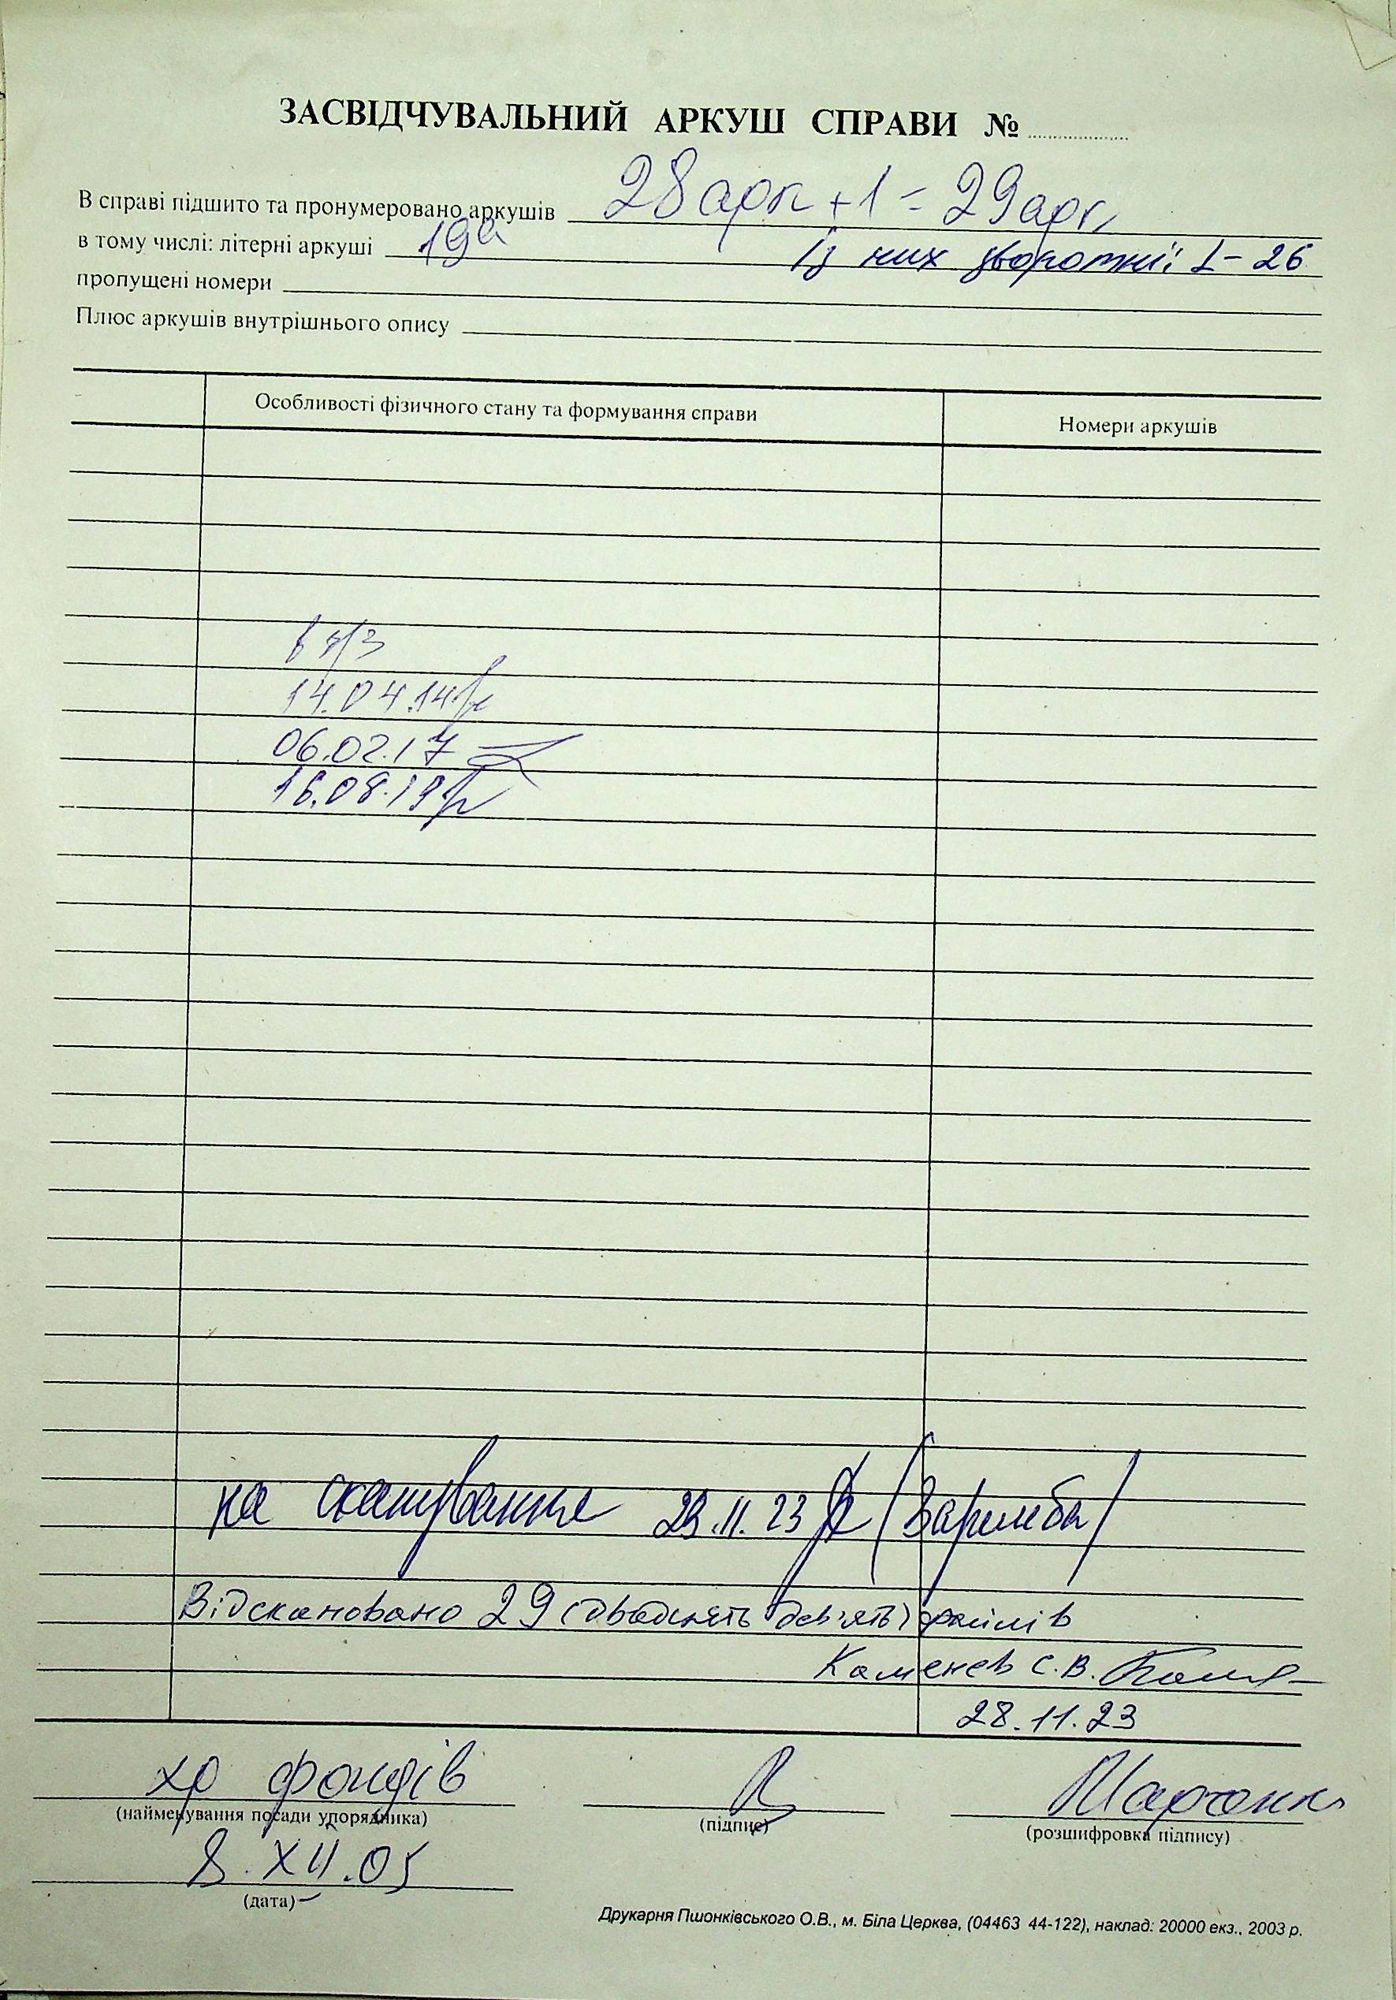 ЗАСВІДЧУВАЛЬНИЙ АРКУШ СПРАВИ №
В справі підшито та пронумеровано аркушів 28 арк + 1 = 29 арк,
в тому числі: літерні аркуші 19а Із них зворотні: 1-26
пропущені номери
Плюс аркушів внутрішнього опису
Особливості фізичного стану та формування справи
Номери аркушів
14.04.14
06.02.17
16.08.19
на сканування 23.11.23
Відскановано 29 (двадцять дев'ять) файлів
Каменєв С.В.
28.11.23
хр фондів
(найменування посади упорядника)
(підпис)
(розшифровка підпису)
8.XII.05
(дата)
Друкарня Пшонківського О.В., м. Біла Церква, (04463 44-122), наклад: 20000 екз., 2003 р.